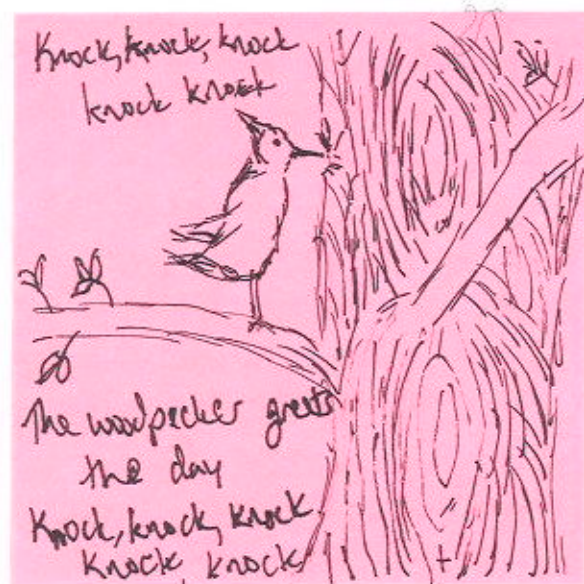 Knock, knock, knock
knock knock
The woodpecker greets
the day
Knock, knock, knock
knock knock